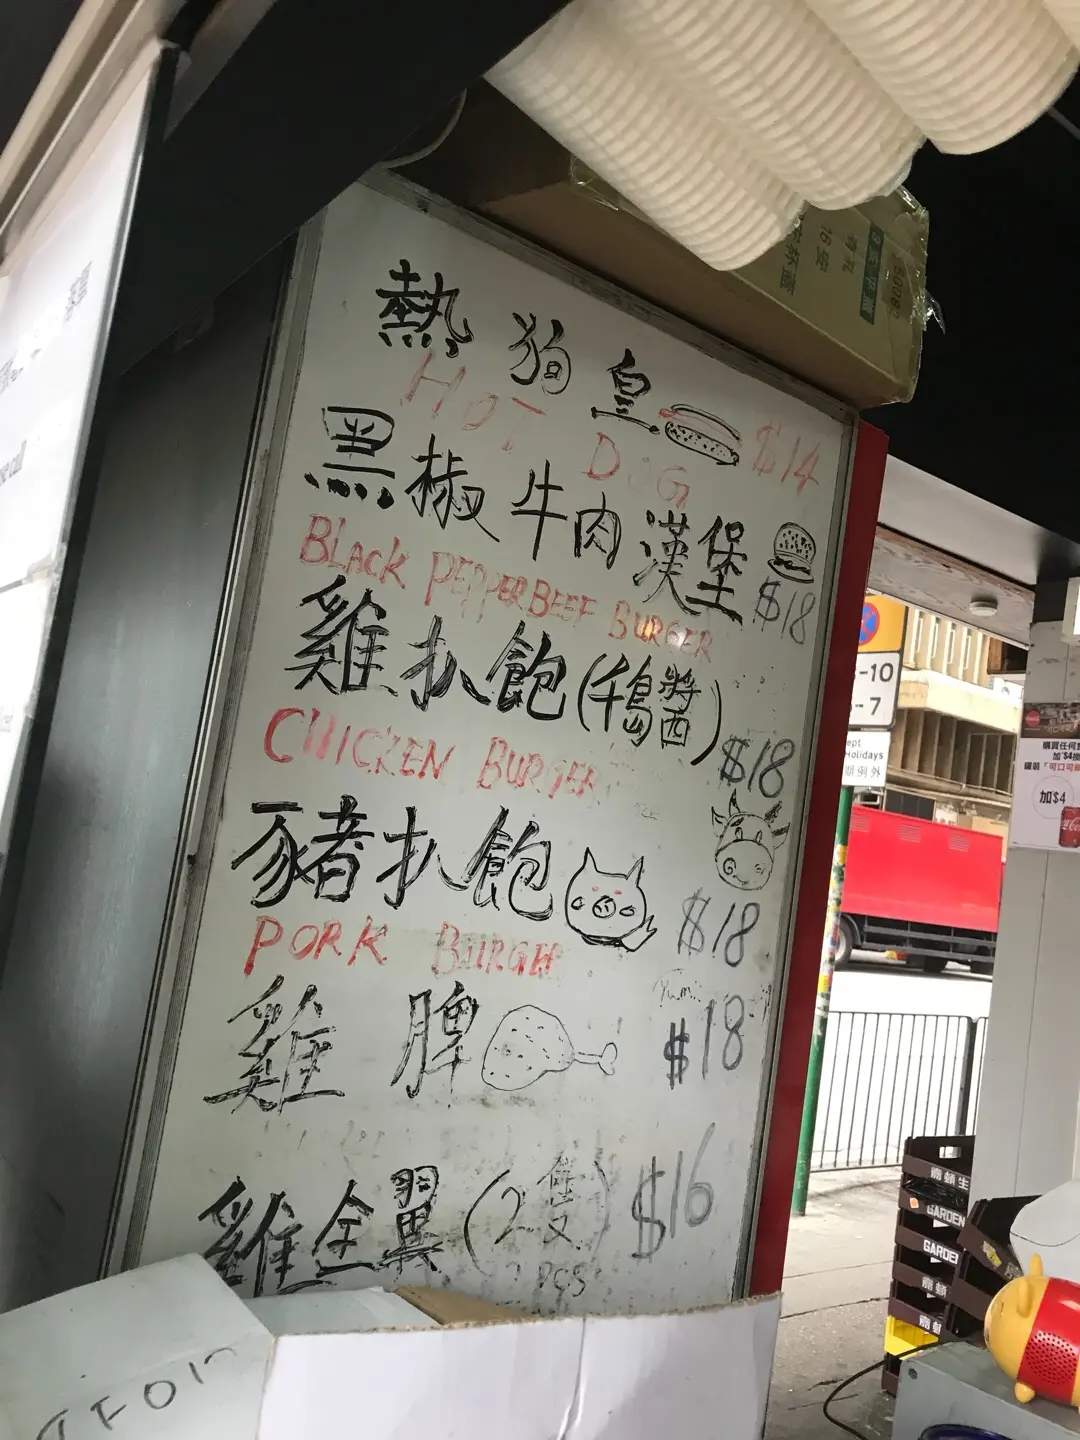 熱狗皇 $14
HOT DOG
黑椒牛肉漢堡 $18
BLACK PEPPER BEEF BURGER
雞扒飽(千島醬) $18
CHICKEN BURGER
豬扒飽 $18
PORK BURGER
雞脾 $18
雞全翼(2隻) $16
2 PCS
-10
-7
ept
Holidays
期例外
購買任何
加$4
加$4
GARDEN
GARDE
16安